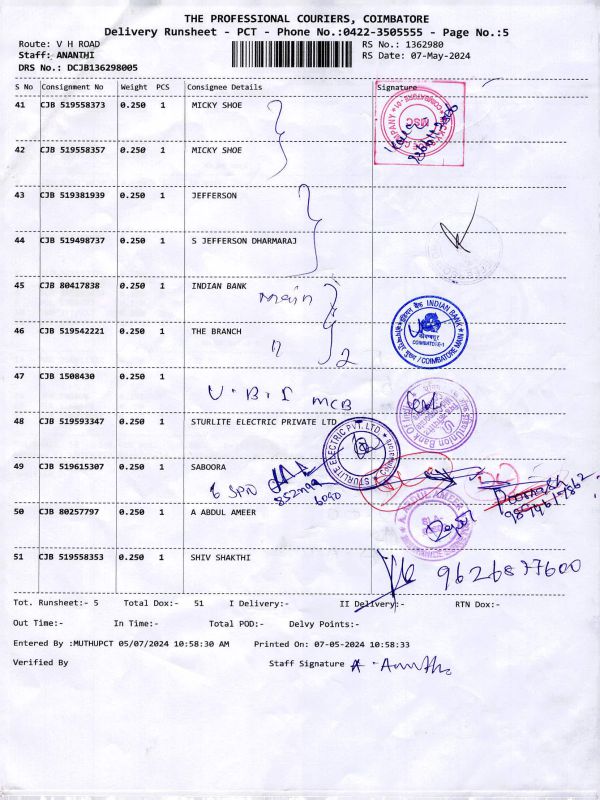 THE PROFESSIONAL COURIERS, COIMBATORE
Delivery Runsheet - PCT - Phone No.:0422-3505555 - Page No.:5
Route: V H ROAD RS No.: 1362980
Staff: ANANTHI RS Date: 07-May-2024
DRS No.: DCJB136298005
S No Consignment No Weight PCS Consignee Details Signature
41 CJB 519558373 0.250 1 MICKY SHOE
42 CJB 519558357 0.250 1 MICKY SHOE
43 CJB 519381939 0.250 1 JEFFERSON
44 CJB 519498737 0.250 1 S JEFFERSON DHARMARAJ
45 CJB 80417838 0.250 1 INDIAN BANK
Main
INDIAN BANK
COIMBATORE-1
COIMBATORE MAIN
46 CJB 519542221 0.250 1 THE BRANCH
2
47 CJB 1508430 0.250 1
U.B.I MCB
Union Bank Of
48 CJB 519593347 0.250 1 STURLITE ELECTRIC PRIVATE LTD
STURLITE ELECTRIC PVT. LTD.
49 CJB 519615307 0.250 1 SABOORA
50 CJB 80257797 0.250 1 A ABDUL AMEER
A. ABDUL AMEER
51 CJB 519558353 0.250 1 SHIV SHAKTHI
9626877600
Tot. Runsheet:- 5 Total Dox:- 51 I Delivery:- II Delivery:- RTN Dox:-
Out Time:- In Time:- Total POD:- Delvy Points:-
Entered By :MUTHUPCT 05/07/2024 10:58:30 AM Printed On: 07-05-2024 10:58:33
Verified By Staff Signature A. Ananthi